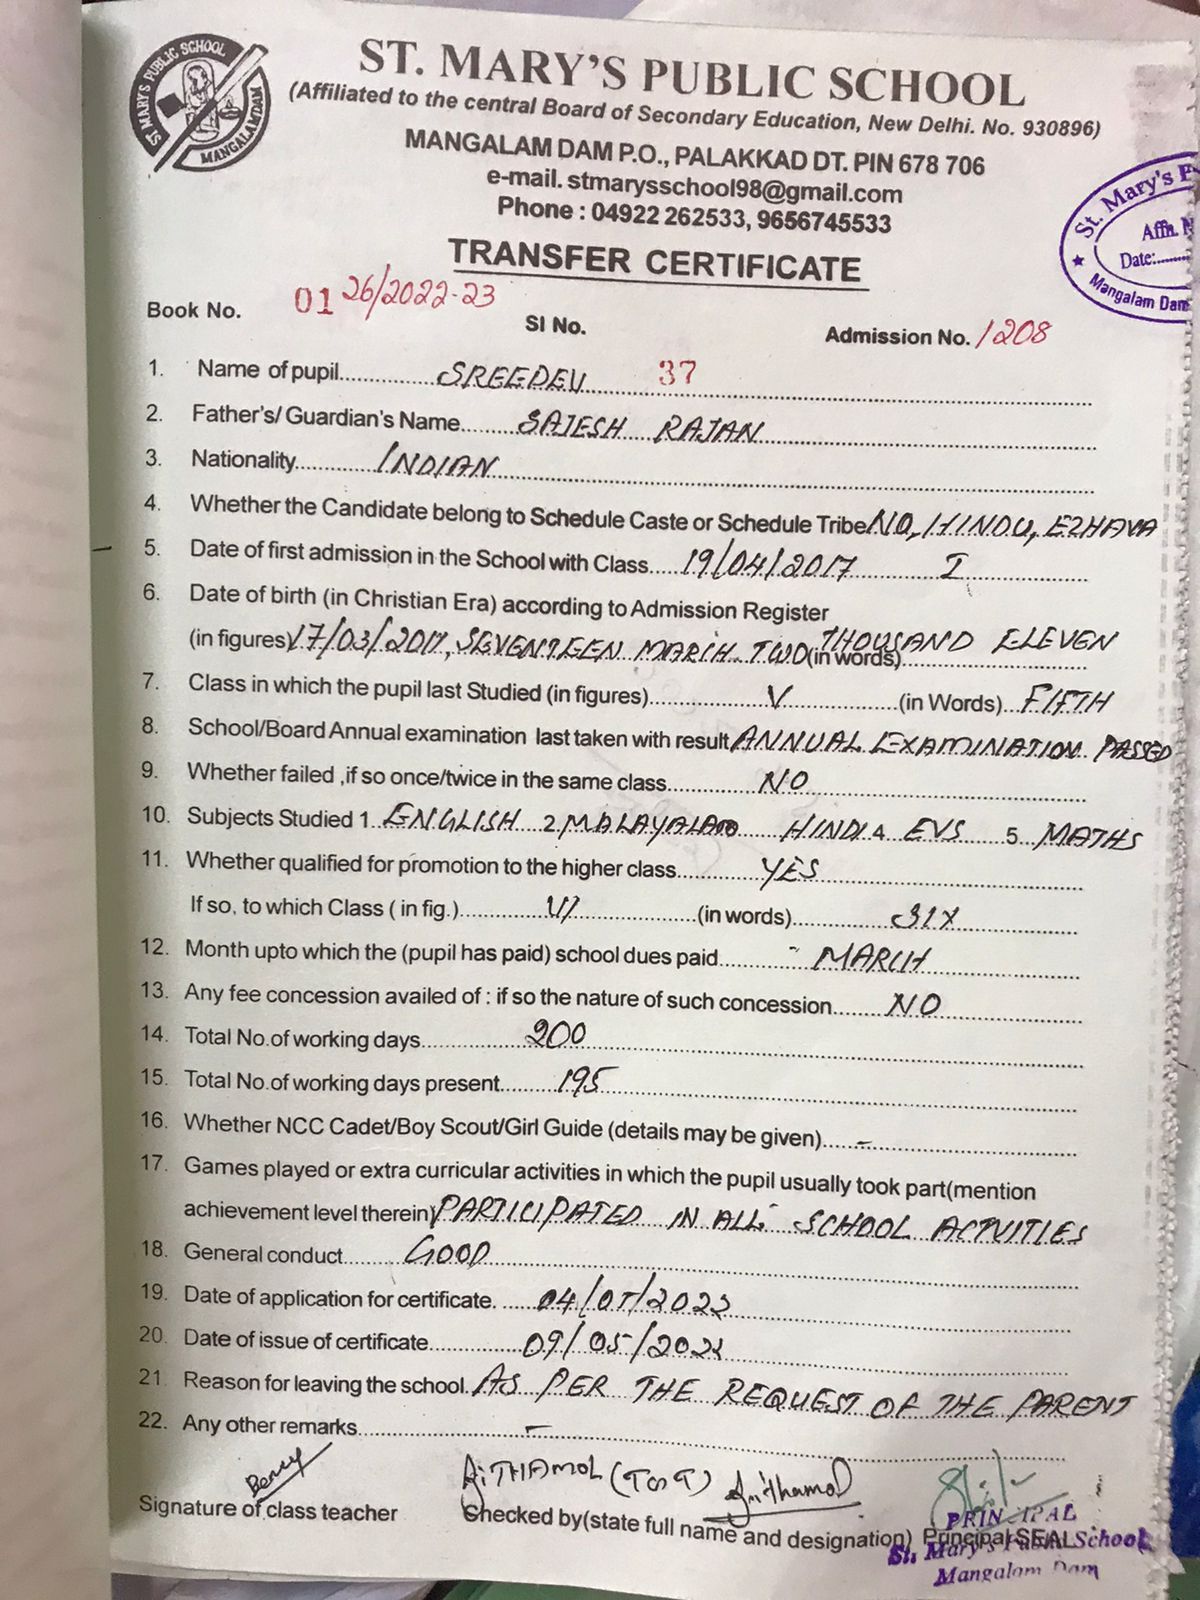 ST. MARY'S PUBLIC SCHOOL
MANGALAMDAM
ST. MARY'S PUBLIC SCHOOL
(Affiliated to the central Board of Secondary Education, New Delhi. No. 930896)
MANGALAM DAM P.O., PALAKKAD DT. PIN 678 706
e-mail. stmarysschool98@gmail.com
Phone : 04922 262533, 9656745533
St. Mary's P
Affn. N
Date:
Mangalam Dam
TRANSFER CERTIFICATE
Book No. 01 26/2022-23 Sl No. 37 Admission No. 1208
1. Name of pupil SREEDEV
2. Father's/ Guardian's Name SAJESH RAJAN
3. Nationality INDIAN
4. Whether the Candidate belong to Schedule Caste or Schedule Tribe NO, HINDU, EZHAVA
5. Date of first admission in the School with Class 19/04/2017 I
6. Date of birth (in Christian Era) according to Admission Register
(in figures) 17/03/2011, SEVENTEEN MARCH TWO (in words) THOUSAND ELEVEN
7. Class in which the pupil last Studied (in figures) V (in Words) FIFTH
8. School/Board Annual examination last taken with result ANNUAL EXAMINATION PASSED
9. Whether failed ,if so once/twice in the same class NO
10. Subjects Studied 1 ENGLISH 2 MALAYALAM HINDI 4 EVS 5 MATHS
11. Whether qualified for promotion to the higher class YES
If so, to which Class ( in fig.) VI (in words) SIX
12. Month upto which the (pupil has paid) school dues paid MARCH
13. Any fee concession availed of : if so the nature of such concession NO
14. Total No.of working days 200
15. Total No.of working days present 195
16. Whether NCC Cadet/Boy Scout/Girl Guide (details may be given) -
17. Games played or extra curricular activities in which the pupil usually took part(mention
achievement level therein) PARTICIPATED IN ALL SCHOOL ACTVITIES
18. General conduct GOOD
19. Date of application for certificate. 04/05/2022
20. Date of issue of certificate 09/05/2022
21. Reason for leaving the school. AS PER THE REQUEST OF THE PARENT
22. Any other remarks -
AJITHAMOL (TGT)
Signature of class teacher Checked by(state full name and designation) Principal SEAL
PRINCIPAL
St. Mary's Public School
Mangalam Dam